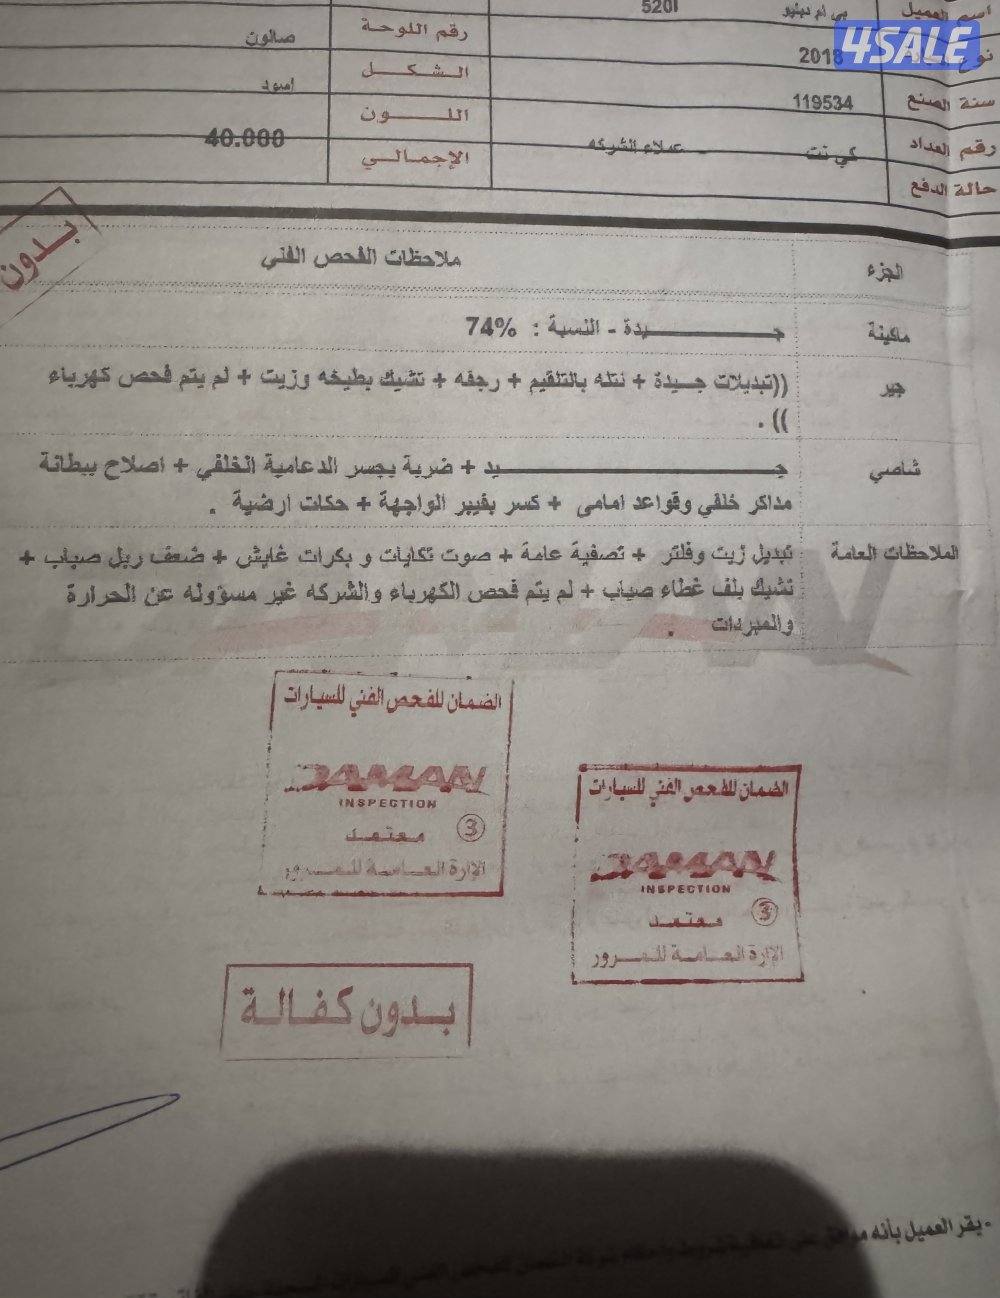 اسم العميل
بي ام دبليو
520I
4SALE
نوع
2018
رقم اللوحة
صالون
سنة الصنع
119534
الشكل
اسود
رقم العداد
كي نت - عملاء الشركه
اللون
40.000
حالة الدفع
الإجمالي
بدون
الجزء
ملاحظات الفحص الفني
ماكينة
جيدة - النسبة : 74%
جير
((تبديلات جيدة + نتله بالتلقيم + رجفه + تشيك بطيخه وزيت + لم يتم فحص كهرباء
)) .
شاصي
جيد + ضربة بجسر الدعامية الخلفي + اصلاح ببطانة
مداكر خلفي وقواعد امامى + كسر بفيبر الواجهة + حكات ارضية .
الملاحظات العامة
تبديل زيت وفلتر + تصفية عامة + صوت تكايات و بكرات غايش + ضعف ريل صباب +
تشيك بلف غطاء صباب + لم يتم فحص الكهرباء والشركه غير مسؤوله عن الحرارة
والمبردات .
الضمان للفحص الفني للسيارات
DAMAN
INSPECTION
3
معتمد
الإارة العامة للمرور
الضمان للفحص الفني للسيارات
DAMAN
INSPECTION
3
معتمد
الإارة العامة للمرور
بدون كفالة
- يقر العميل بأنه